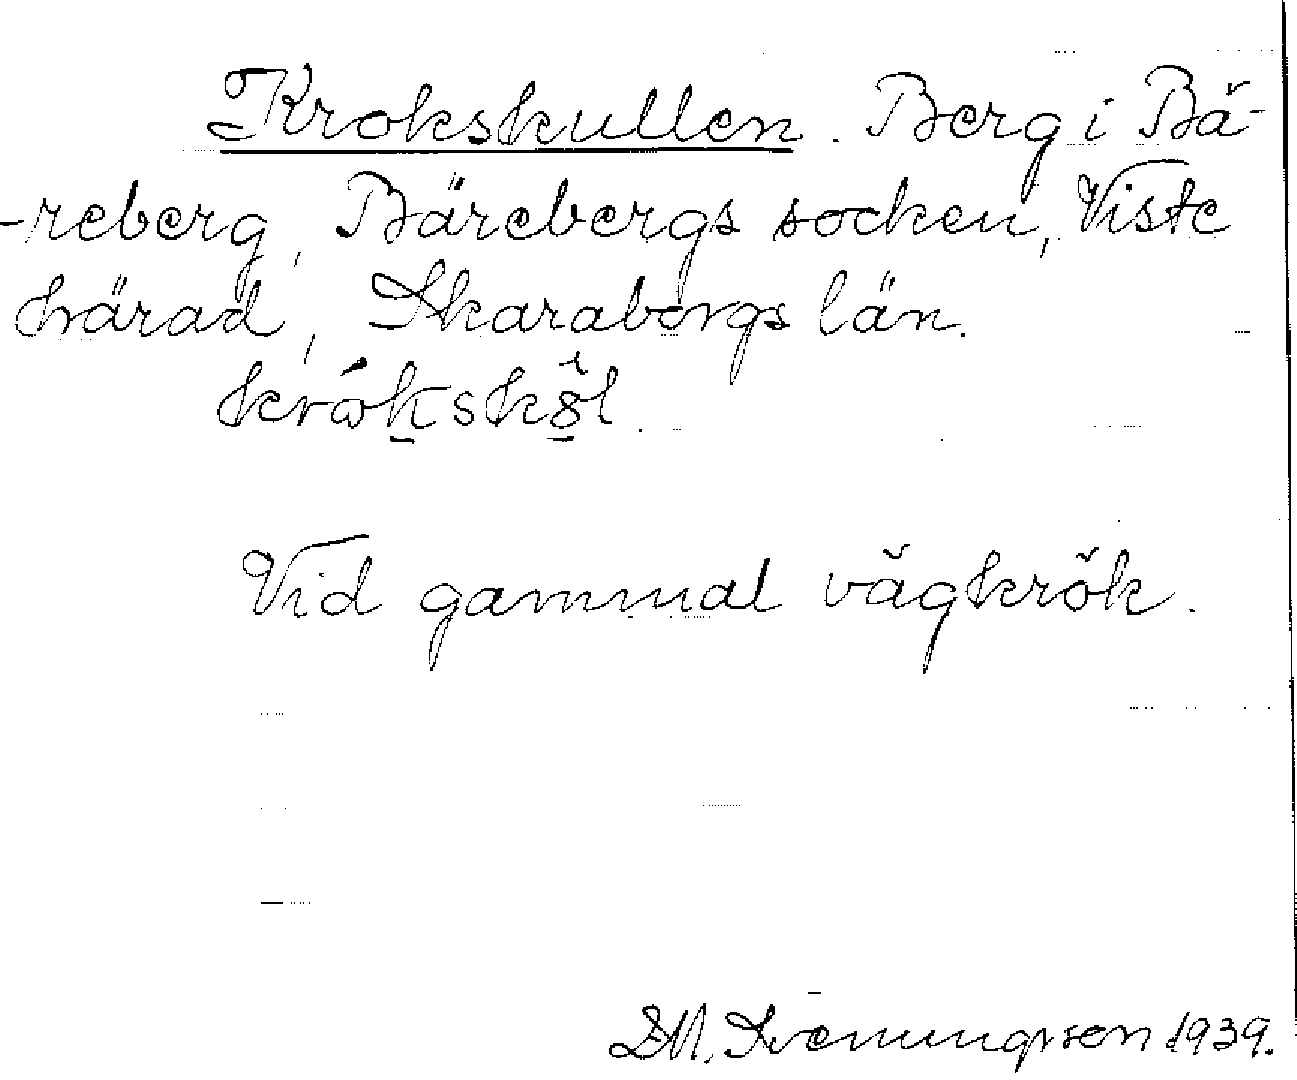 Krokskullen. Berg i Bä-
-reberg, Bärebergs socken, Viste
härad, Skaraborgs län.

Vid gammal vägkrök.
Svenungsson 1939.